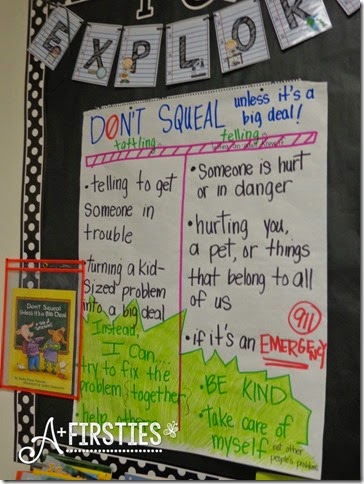 EXPLOR
DON'T SQUEAL unless it's a
big deal!
tattling
telling
• telling to get
someone in
trouble
• turning a kid-
sized problem
into a big deal
Instead,
I can...
try to fix the
problem together,
help other
• Someone is hurt
or in danger
• hurting you,
a pet, or things
that belong to all
of us
• if it's an EMERGENCY
911
• BE KIND
• Take care of
myself not other
people's problems
Don't Squeal
Unless It's a Big Deal
A+FIRSTIES